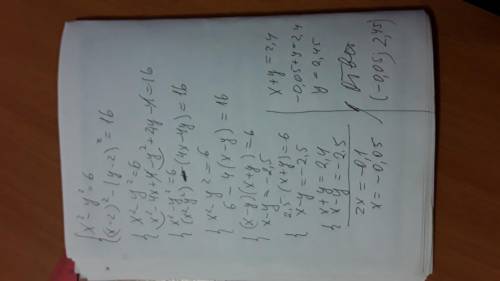 { x² - y² = 6
(x-2)² - (y-2)² = 16
{ x² - y² = 6
x² - 4x + 4 - y² + 4y - 4 = 16
{ x² - y² = 6
(x² - y²) - (4x - 4y) = 16
{ x² - y² = 6
6 - 4(x-y) = 16
{ (x-y)(x+y) = 6
x-y = -2,5
{ 2,5(x+y) = 6
x-y = -2,5
{ x+y = 2,4
x-y = -2,5
2x = -0,1
x = -0,05
x+y = 2,4
-0,05+y = 2,4
y = 0,45
Ответ
(-0,05; 2,45)